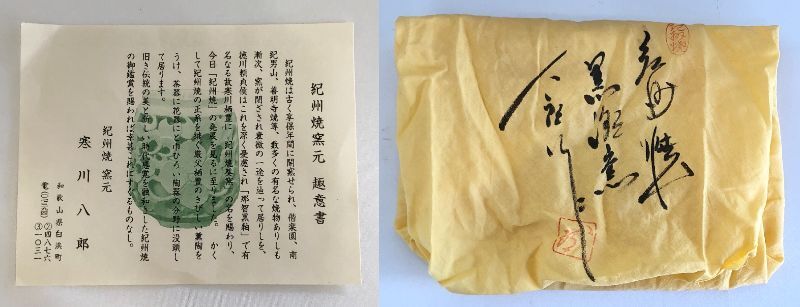 紀州焼窯元 趣意書
紀州焼は古く享保年間に開窯せられ、偕楽園、南
紀男山、善明寺焼等、数多くの有名な焼物ありしも
漸次、窯が閉ざされ衰微の一途を辿って居りしを、
徳川頼貞侯はこれを深く憂慮され「那智黒釉」で有
名なる故寒川栖豊に「紀州焼葵窯」の名を賜わり、
今日「紀州焼」の発展を見るに至ります。 かく
して紀州焼の正系を継ぐ厳父栖豊のきびしい薫陶を
うけ、茶器に花器にと巾ひろい陶器の分野に没頭し
て居ります。
旧き伝統の美と新しい時代感覚を融和した紀州焼
の御鑑賞を賜われば幸甚これにすぐるものなし。
紀州焼 窯元
寒川八郎
和歌山県白浜町
電(〇七三九四)②四八七六
③一〇三一
紀州焼
黒潮窯
八郎作